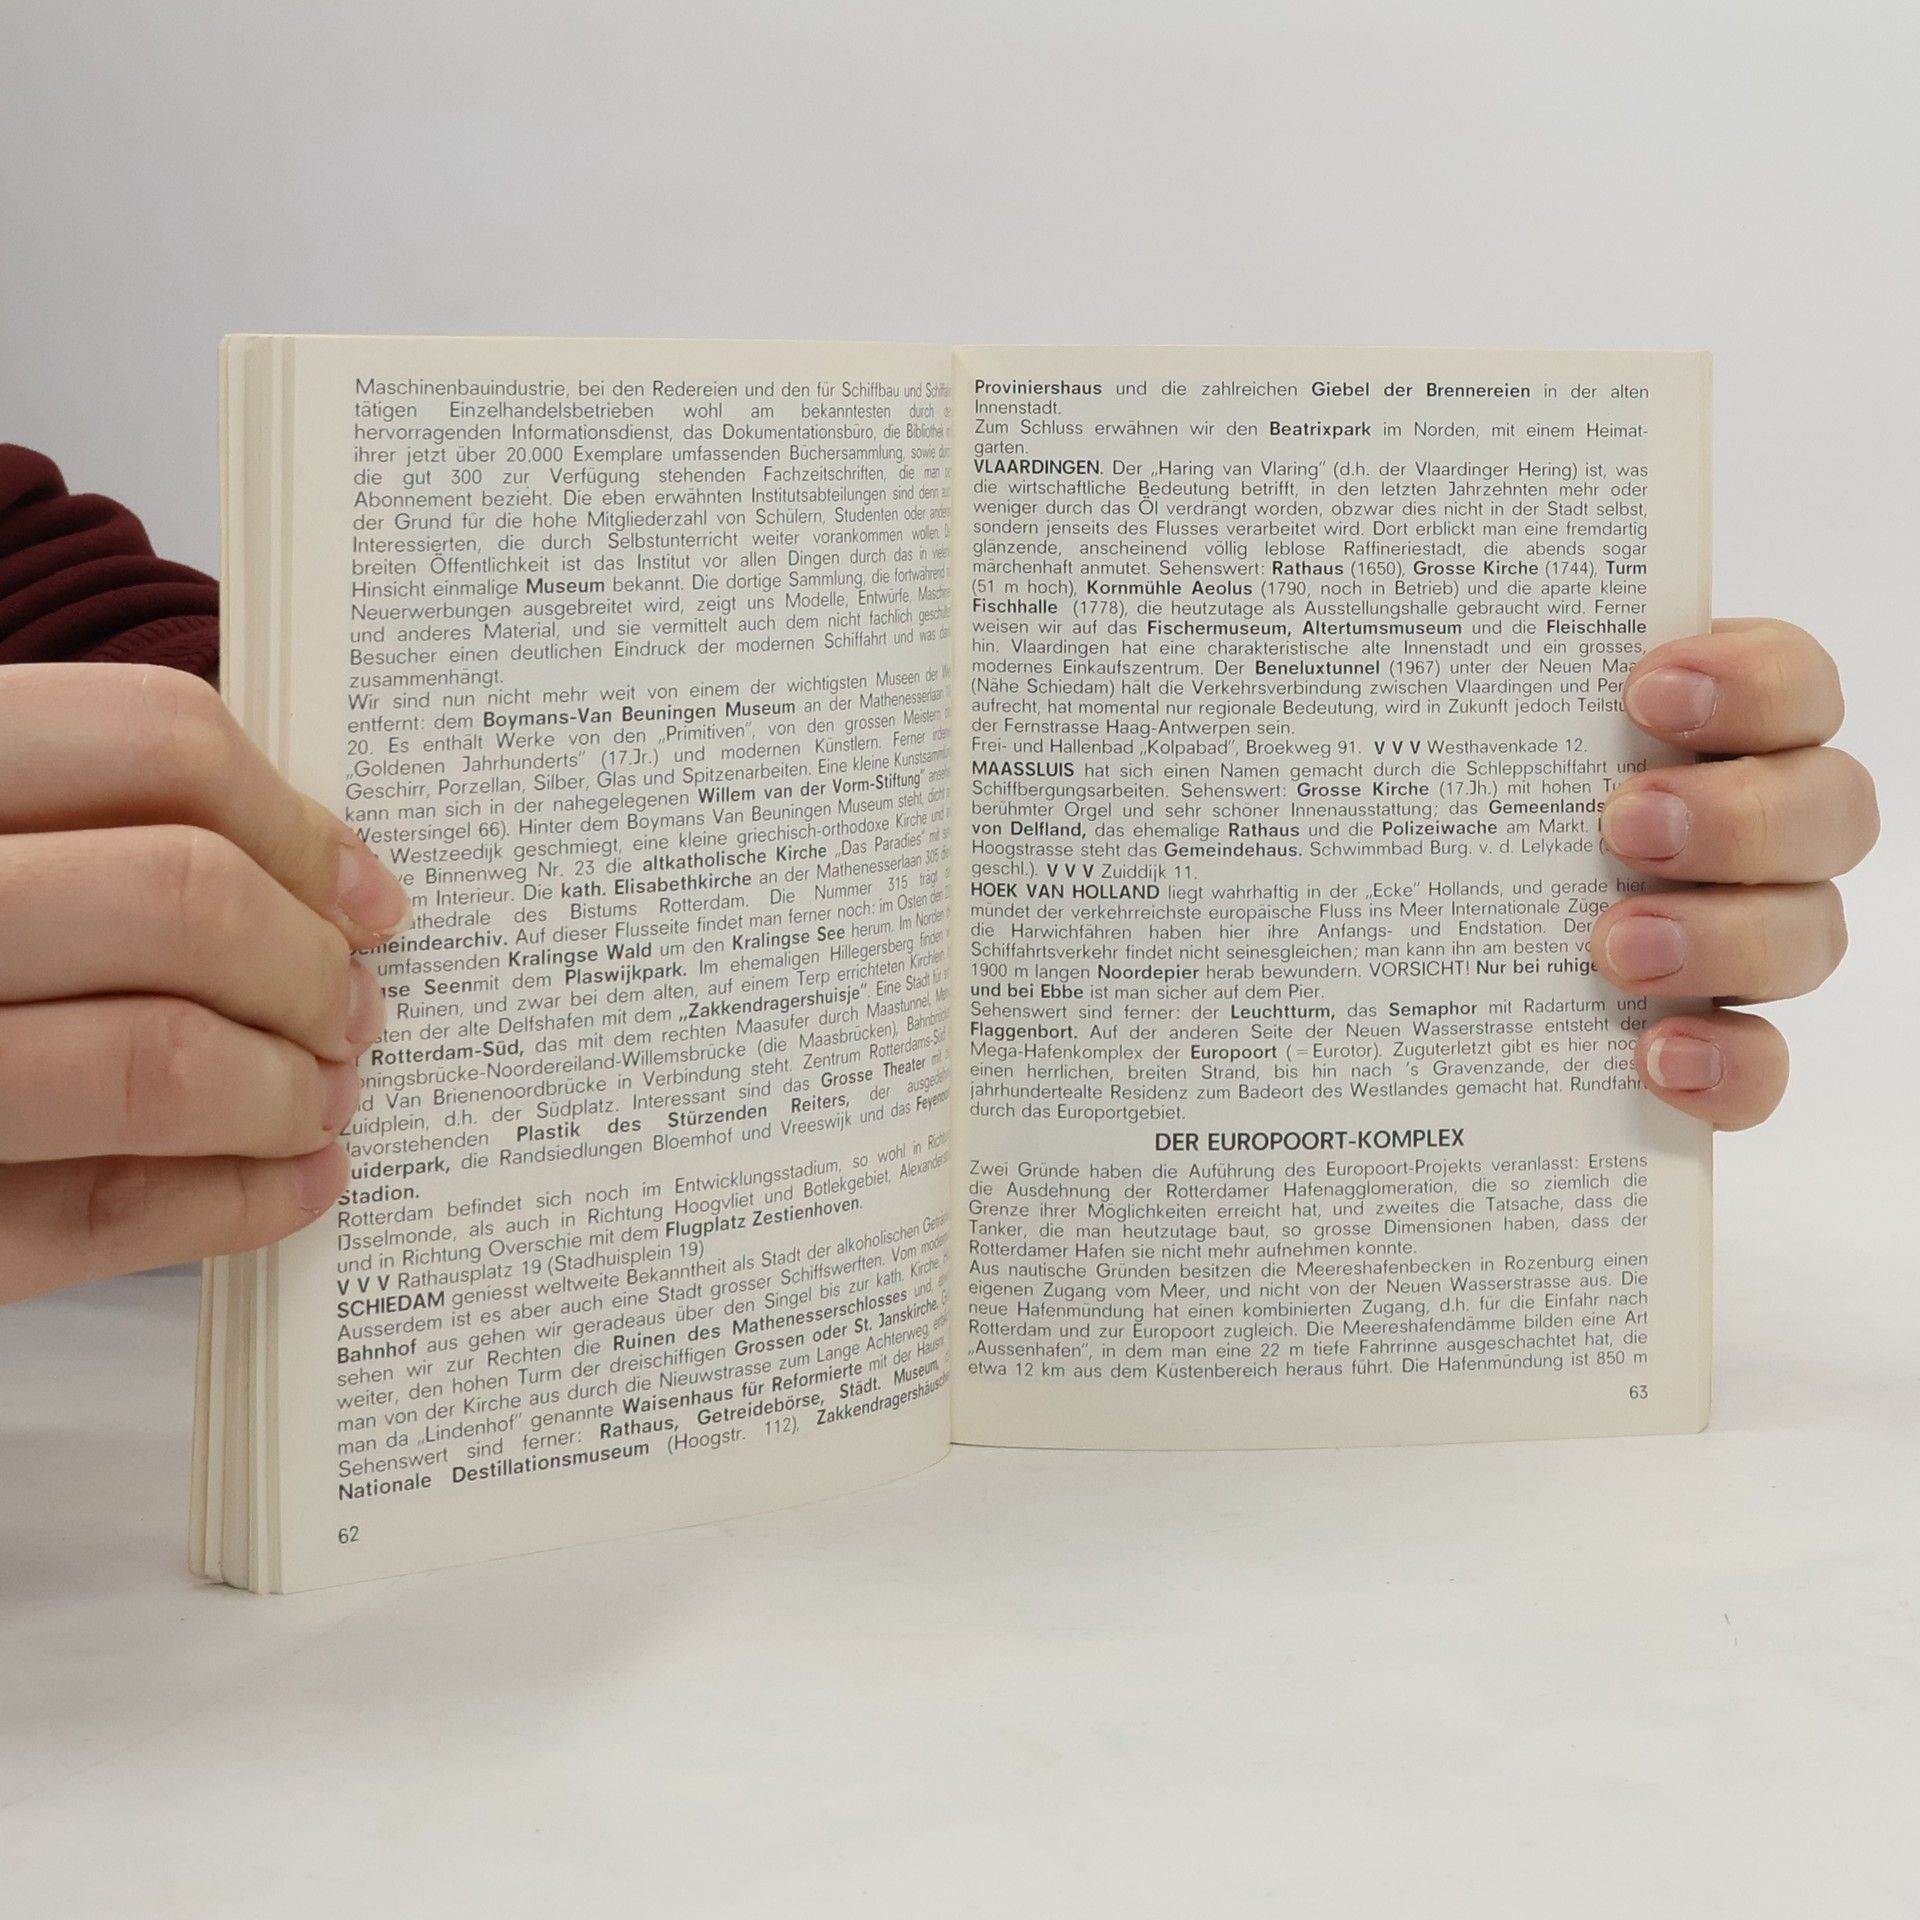 Maschinenbauindustrie, bei den Redereien und den für Schiffbau und
tätigen Einzelhandelsbetrieben wohl am bekanntesten durch
hervorragenden Informationsdienst, das Dokumentationsbüro, die Bibliothek
ihrer jetzt über 20.000 Exemplare umfassenden Büchersammlung, sowie
die gut 300 zur Verfügung stehenden Fachzeitschriften, die man
Abonnement bezieht. Die eben erwähnten Institutsabteilungen sind denn
der Grund für die hohe Mitgliederzahl von Schülern, Studenten oder
Interessierten, die durch Selbstunterricht weiter vorankommen wollen.
breiten Öffentlichkeit ist das Institut vor allen Dingen durch das in
Hinsicht einmalige Museum bekannt. Die dortige Sammlung, die fortwährend
Neuerwerbungen ausgebreitet wird, zeigt uns Modelle, Entwürfe,
und anderes Material, und sie vermittelt auch dem nicht fachlich
Besucher einen deutlichen Eindruck der modernen Schiffahrt und was
zusammenhängt.
Wir sind nun nicht mehr weit von einem der wichtigsten Museen der
entfernt: dem Boymans-Van Beuningen Museum an der Mathenesserlaan
20. Es enthält Werke von den „Primitiven", von den grossen Meistern
„Goldenen Jahrhunderts" (17.Jr.) und modernen Künstlern. Ferner
Geschirr, Porzellan, Silber, Glas und Spitzenarbeiten. Eine kleine
kann man sich in der nahegelegenen Willem van der Vorm-Stiftung"
Westersingel 66). Hinter dem Boymans Van Beuningen Museum steht, dicht
Westzeedijk geschmiegt, eine kleine griechisch-orthodoxe Kirche und
Binnenweg Nr. 23 die altkatholische Kirche „Das Paradies" mit
Interieur. Die kath. Elisabethkirche an der Mathenesserlaan 305
des Bistums Rotterdam. Die Nummer 315 trägt
Auf dieser Flusseite findet man ferner noch: im Osten den
umfassenden Kralingse Wald um den Kralingse See herum. Im Norden
Seenmit dem Plaswijkpark. Im ehemaligen Hillegersberg finden
Ruinen, und zwar bei dem alten, auf einem Terp errichteten Kirchlein
der alte Delfshafen mit dem „Zakkendragershuisje". Eine Stadt für
Rotterdam-Süd, das mit dem rechten Maasufer durch Maastunnel,
(die Maasbrücken),
Van Brienenoordbrücke in Verbindung steht. Zentrum Rotterdams-Süd
Zuidplein, d.h. der Südplatz. Interessant sind das Grosse Theater mit
davorstehenden Plastik des Stürzenden Reiters, der
Zuiderpark, die Randsiedlungen Bloemhof und Vreeswijk und das
Stadion.
Rotterdam befindet sich noch im Entwicklungsstadium, so wohl in
IJsselmonde, als auch in Richtung Hoogvliet und Botlekgebiet,
und in Richtung Overschie mit dem Flugplatz Zestienhoven.
V V V Rathausplatz 19 (Stadhuisplein 19)
SCHIEDAM geniesst weltweite Bekanntheit als Stadt der alkoholischen
Ausserdem ist es aber auch eine Stadt grosser Schiffswerften. Vom
Bahnhof aus gehen wir geradeaus über den Singel bis zur kath. Kirche.
sehen wir zur Rechten die Ruinen des Mathenesserschlosses und,
weiter, den hohen Turm der dreischiffigen Grossen oder St. Janskirche.
man von der Kirche aus durch die Nieuwstrasse zum Lange Achterweg,
man da „Lindenhof" genannte Waisenhaus für Reformierte mit der
Sehenswert sind ferner: Rathaus, Getreidebörse, Städt. Museum,
Nationale Destillationsmuseum (Hoogstr. 112),
62
Proviniershaus und die zahlreichen Giebel der Brennereien in der alten
Innenstadt.
Zum Schluss erwähnen wir den Beatrixpark im Norden, mit einem Heimat-
garten.
VLAARDINGEN. Der „Haring van Vlaring" (d.h. der Vlaardinger Hering) ist, was
die wirtschaftliche Bedeutung betrifft, in den letzten Jahrzehnten mehr oder
weniger durch das Öl verdrängt worden, obzwar dies nicht in der Stadt selbst,
sondern jenseits des Flusses verarbeitet wird. Dort erblickt man eine fremdartig
glänzende, anscheinend völlig leblose Raffineriestadt, die abends sogar
märchenhaft anmutet. Sehenswert: Rathaus (1650), Grosse Kirche (1744), Turm
(51 m hoch), Kornmühle Aeolus (1790, noch in Betrieb) und die aparte kleine
Fischhalle (1778), die heutzutage als Ausstellungshalle gebraucht wird. Ferner
weisen wir auf das Fischermuseum, Altertumsmuseum und die Fleischhalle
hin. Vlaardingen hat eine charakteristische alte Innenstadt und ein grosses,
modernes Einkaufszentrum. Der Beneluxtunnel (1967) unter der Neuen
(Nähe Schiedam) hält die Verkehrsverbindung zwischen Vlaardingen und
aufrecht, hat momental nur regionale Bedeutung, wird in Zukunft jedoch
der Fernstrasse Haag-Antwerpen sein.
Frei- und Hallenbad „Kolpabad", Broekweg 91. V V V Westhavenkade 12.
MAASSLUIS hat sich einen Namen gemacht durch die Schleppschiffahrt und
Schiffbergungsarbeiten. Sehenswert: Grosse Kirche (17.Jh.) mit hohen
berühmter Orgel und sehr schöner Innenausstattung; das
von Delfland, das ehemalige Rathaus und die Polizeiwache am Markt.
Hoogstrasse steht das Gemeindehaus. Schwimmbad Burg. v. d. Lelykade
geschl.). V V V Zuiddijk 11.
HOEK VAN HOLLAND liegt wahrhaftig in der „Ecke" Hollands, und gerade hier
mündet der verkehrreichste europäische Fluss ins Meer Internationale Züge
die Harwichfähren haben hier ihre Anfangs- und Endstation. Der
Schiffahrtsverkehr findet nicht seinesgleichen; man kann ihn am besten
1900 m langen Noordepier herab bewundern. VORSICHT! Nur bei
und bei Ebbe ist man sicher auf dem Pier.
Sehenswert sind ferner: der Leuchtturm, das Semaphor mit Radarturm und
Flaggenbort. Auf der anderen Seite der Neuen Wasserstrasse entsteht der
Mega-Hafenkomplex der Europoort (=Eurotor). Zuguterletzt gibt es hier
einen herrlichen, breiten Strand, bis hin nach 's Gravenzande, der
jahrhundertealte Residenz zum Badeort des Westlandes gemacht hat. Rundfahrt
durch das Europortgebiet.
DER EUROPOORT-KOMPLEX
Zwei Gründe haben die Auführung des Europoort-Projekts veranlasst: Erstens
die Ausdehnung der Rotterdamer Hafenagglomeration, die so ziemlich die
Grenze ihrer Möglichkeiten erreicht hat, und zweites die Tatsache, dass die
Tanker, die man heutzutage baut, so grosse Dimensionen haben, dass der
Rotterdamer Hafen sie nicht mehr aufnehmen konnte.
Aus nautische Gründen besitzen die Meereshafenbecken in Rozenburg einen
eigenen Zugang vom Meer, und nicht von der Neuen Wasserstrasse aus. Die
neue Hafenmündung hat einen kombinierten Zugang, d.h. für die Einfahr nach
Rotterdam und zur Europoort zugleich. Die Meereshafendämme bilden eine Art
„Aussenhafen", in dem man eine 22 m tiefe Fahrrinne ausgeschachtet hat, die
etwa 12 km aus dem Küstenbereich heraus führt. Die Hafenmündung ist 850 m
63